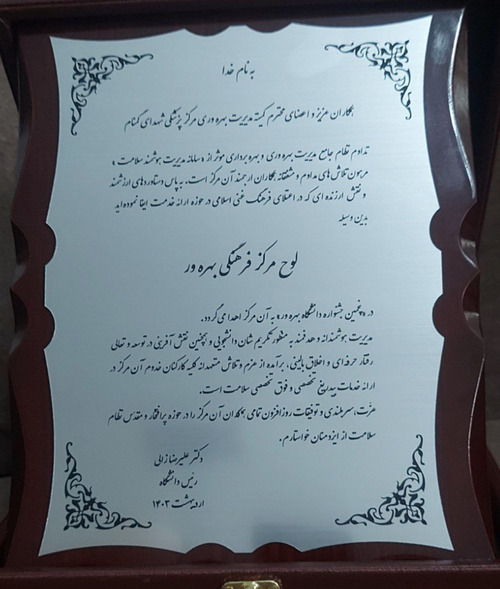 به نام خدا
همکاران عزیز و اعضای محترم کمیته مدیریت بهره وری مرکز پزشکی شهدای گمنام
تداوم نظام جامع مدیریت بهره وری و بهره برداری موثر از «سامانه مدیریت هوشمند سلامت»
مرهون تلاش های مداوم و مشفقانه همکاران ارجمند آن مرکز است، به پاس دستاوردهای ارزشمند
و نقش ارزنده ای که در اعتلای فرهنگ غنی اسلامی در حوزه ارائه خدمت ایفا نموده اید
بدین وسیله
لوح مرکز فرهنگی بهره ور
در «پنجمین جشنواره دانشگاه بهره ور» به آن مرکز اهدا می گردد.
مدیریت هوشمندانه و هدفمند به منظور تکریم شان دانشجویی و همچنین نقش آفرینی در توسعه و تعالی
رفتار حرفه ای و اخلاق بالینی، برآمده از عزم و تلاش متعهدانه کلیه کارکنان خدوم آن مرکز در
ارائه خدمات بیدریغ تخصصی و فوق تخصصی سلامت است.
عزت، سربلندی و توفیقات روزافزون تمامی همکاران آن مرکز را در حوزه پرافتخار و مقدس نظام
سلامت از ایزد منان خواستارم.
دکتر علیرضا زالی
رئیس دانشگاه
اردیبهشت ۱۴۰۳